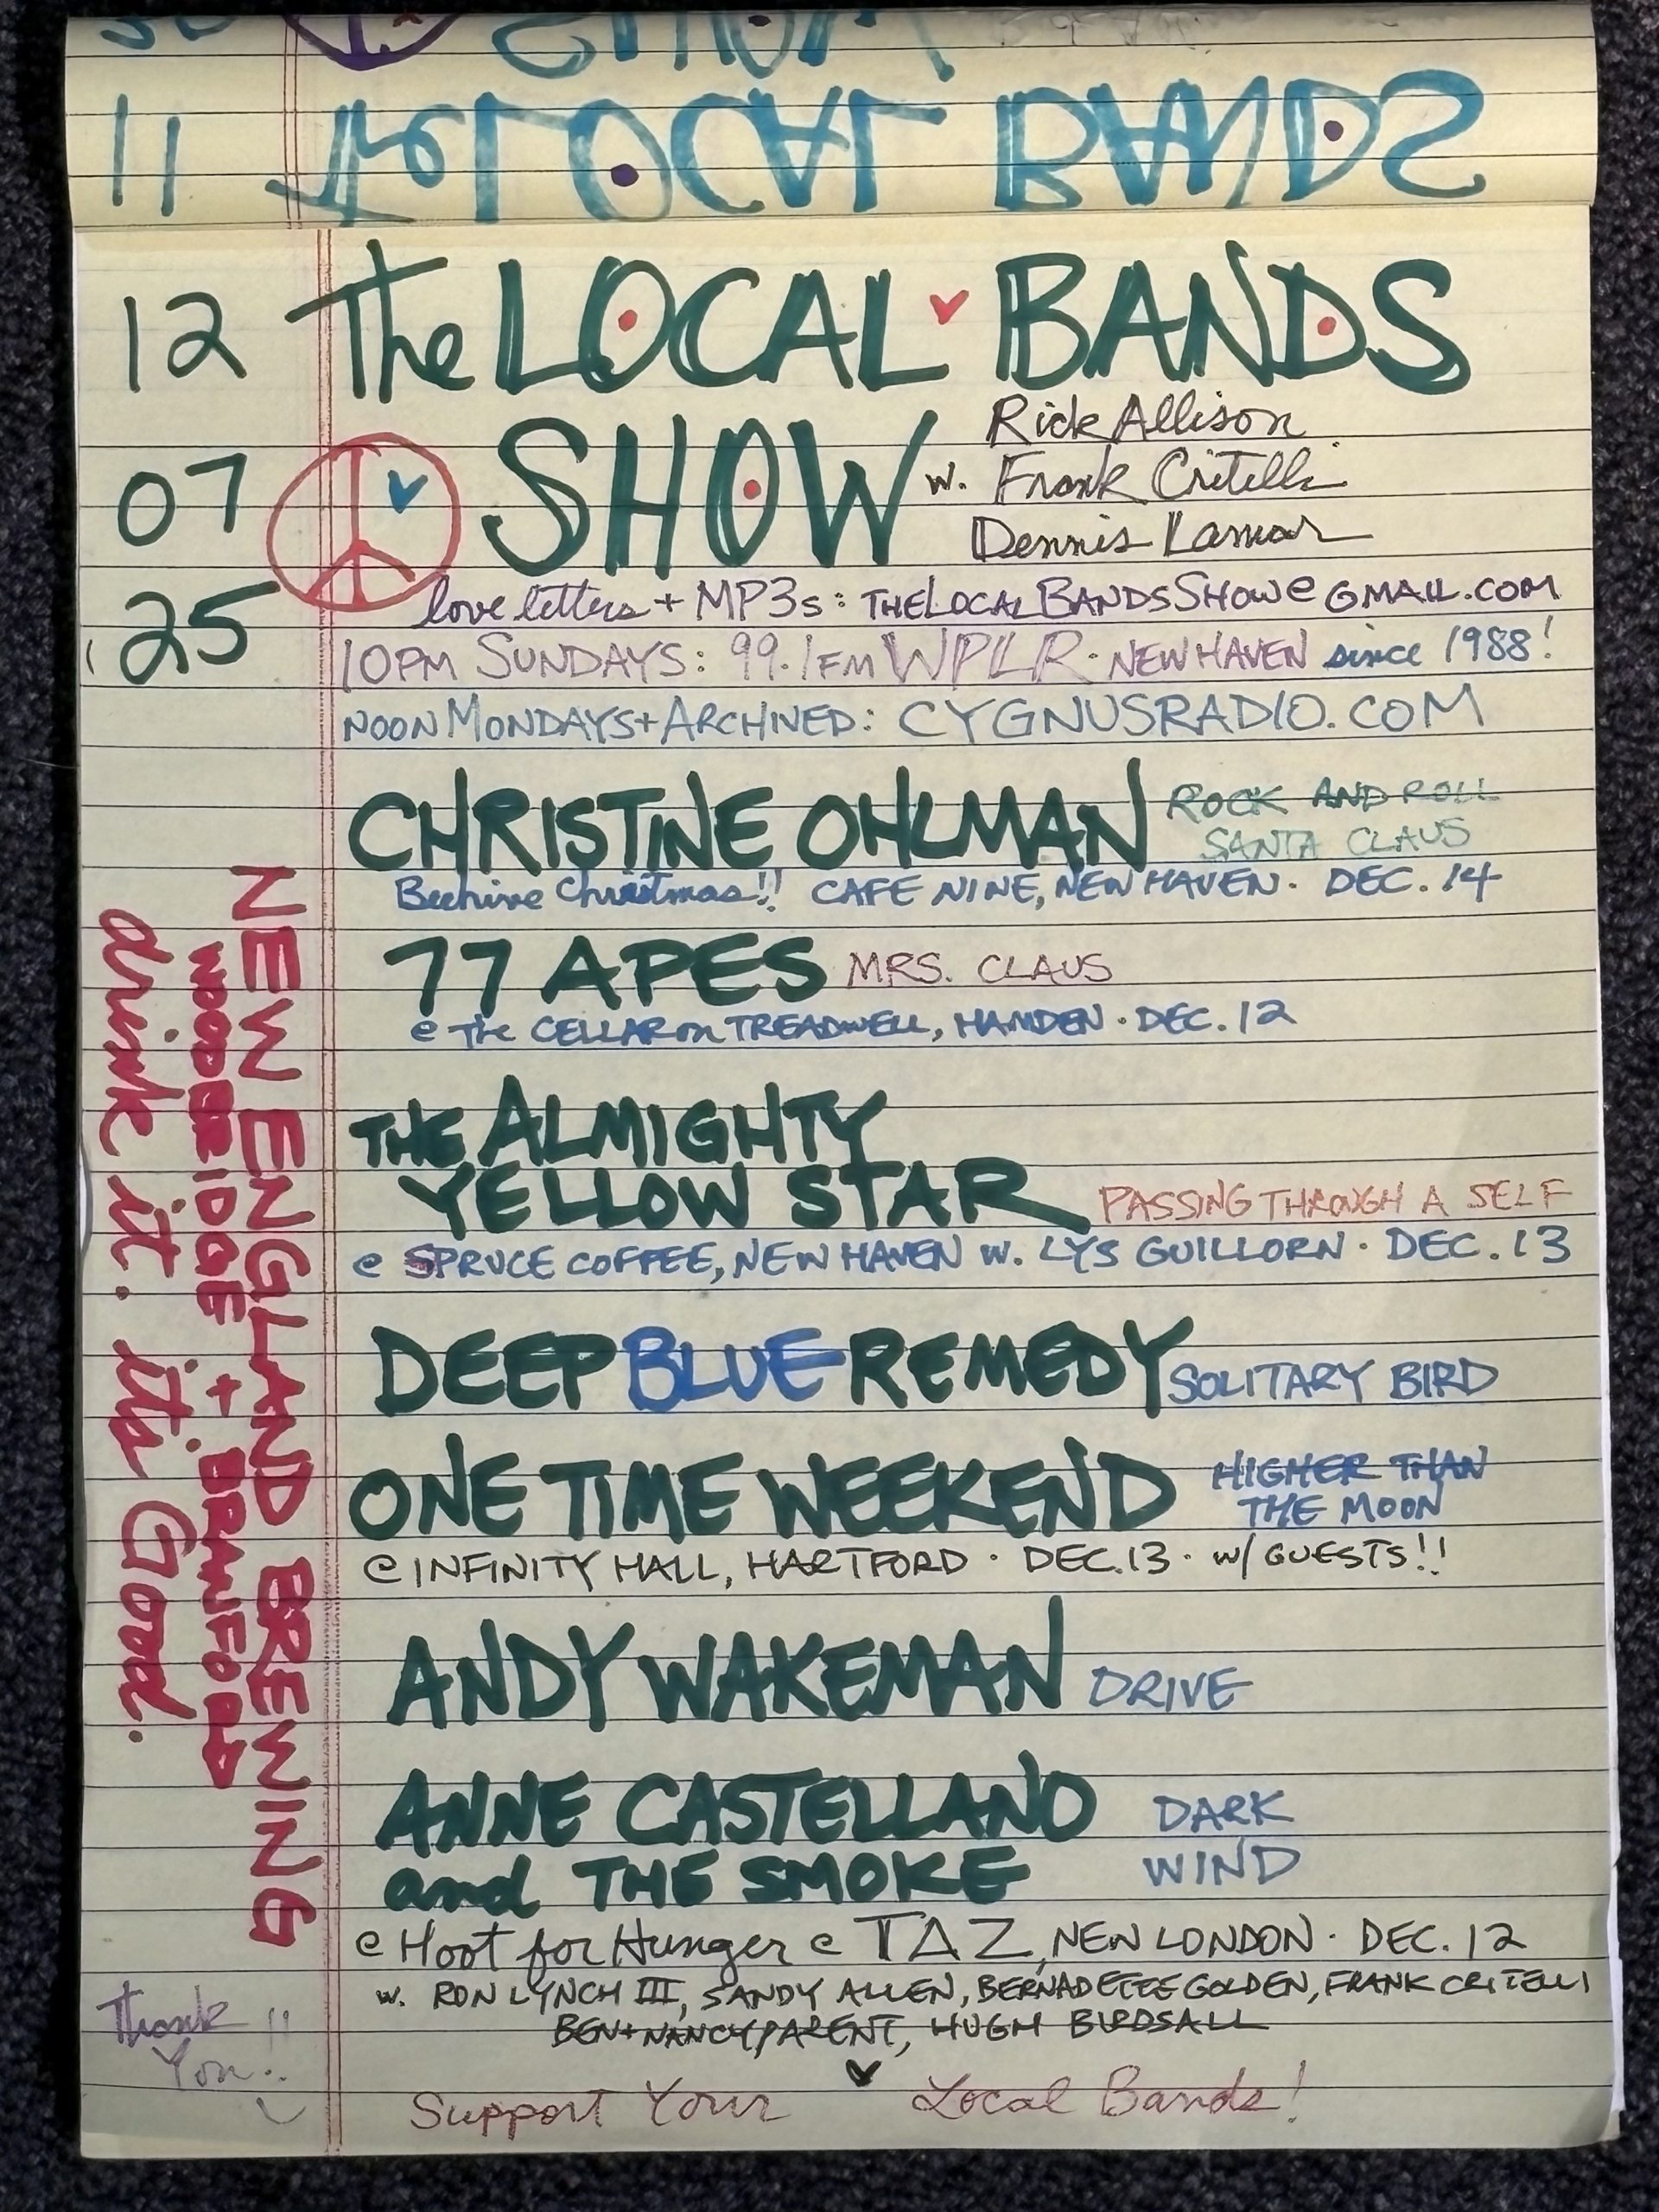 11 The LOCAL BANDS
12 The LOCAL BANDS
07 SHOW w. Rick Allison
Frank Critelli
Dennis Lamar
25 love letters + MP3s: THELOCALBANDSSHOW@GMAIL.COM
10PM SUNDAYS: 99.1FM WPLR · NEW HAVEN since 1988!
NOON MONDAYS + ARCHIVED: CYGNUSRADIO.COM
CHRISTINE OHLMAN ROCK AND ROLL
SANTA CLAUS
Beehive Christmas!! CAFE NINE, NEW HAVEN · DEC. 14
77 APES MRS. CLAUS
@ The CELLAR on TREADWELL, HAMDEN · DEC. 12
THE ALMIGHTY
YELLOW STAR PASSING THROUGH A SELF
@ SPRUCE COFFEE, NEW HAVEN w. LYS GUILLORN · DEC. 13
DEEP BLUE REMEDY SOLITARY BIRD
ONE TIME WEEKEND HIGHER THAN
THE MOON
@ INFINITY HALL, HARTFORD · DEC. 13 · w/ GUESTS!!
ANDY WAKEMAN DRIVE
ANNE CASTELLANO DARK
and THE SMOKE WIND
@ Hoot for Hunger @ TAZ, NEW LONDON · DEC. 12
w. RON LYNCH III, SANDY ALLEN, BERNADETTE GOLDEN, FRANK CRITELLI
BEN + NANCY PARENT, HUGH BIRDSALL
Support Your Local Bands!
NEW ENGLAND BREWING
WOODBRIDGE + BRANFORD
drink it. it's Good.
Thank
You!!